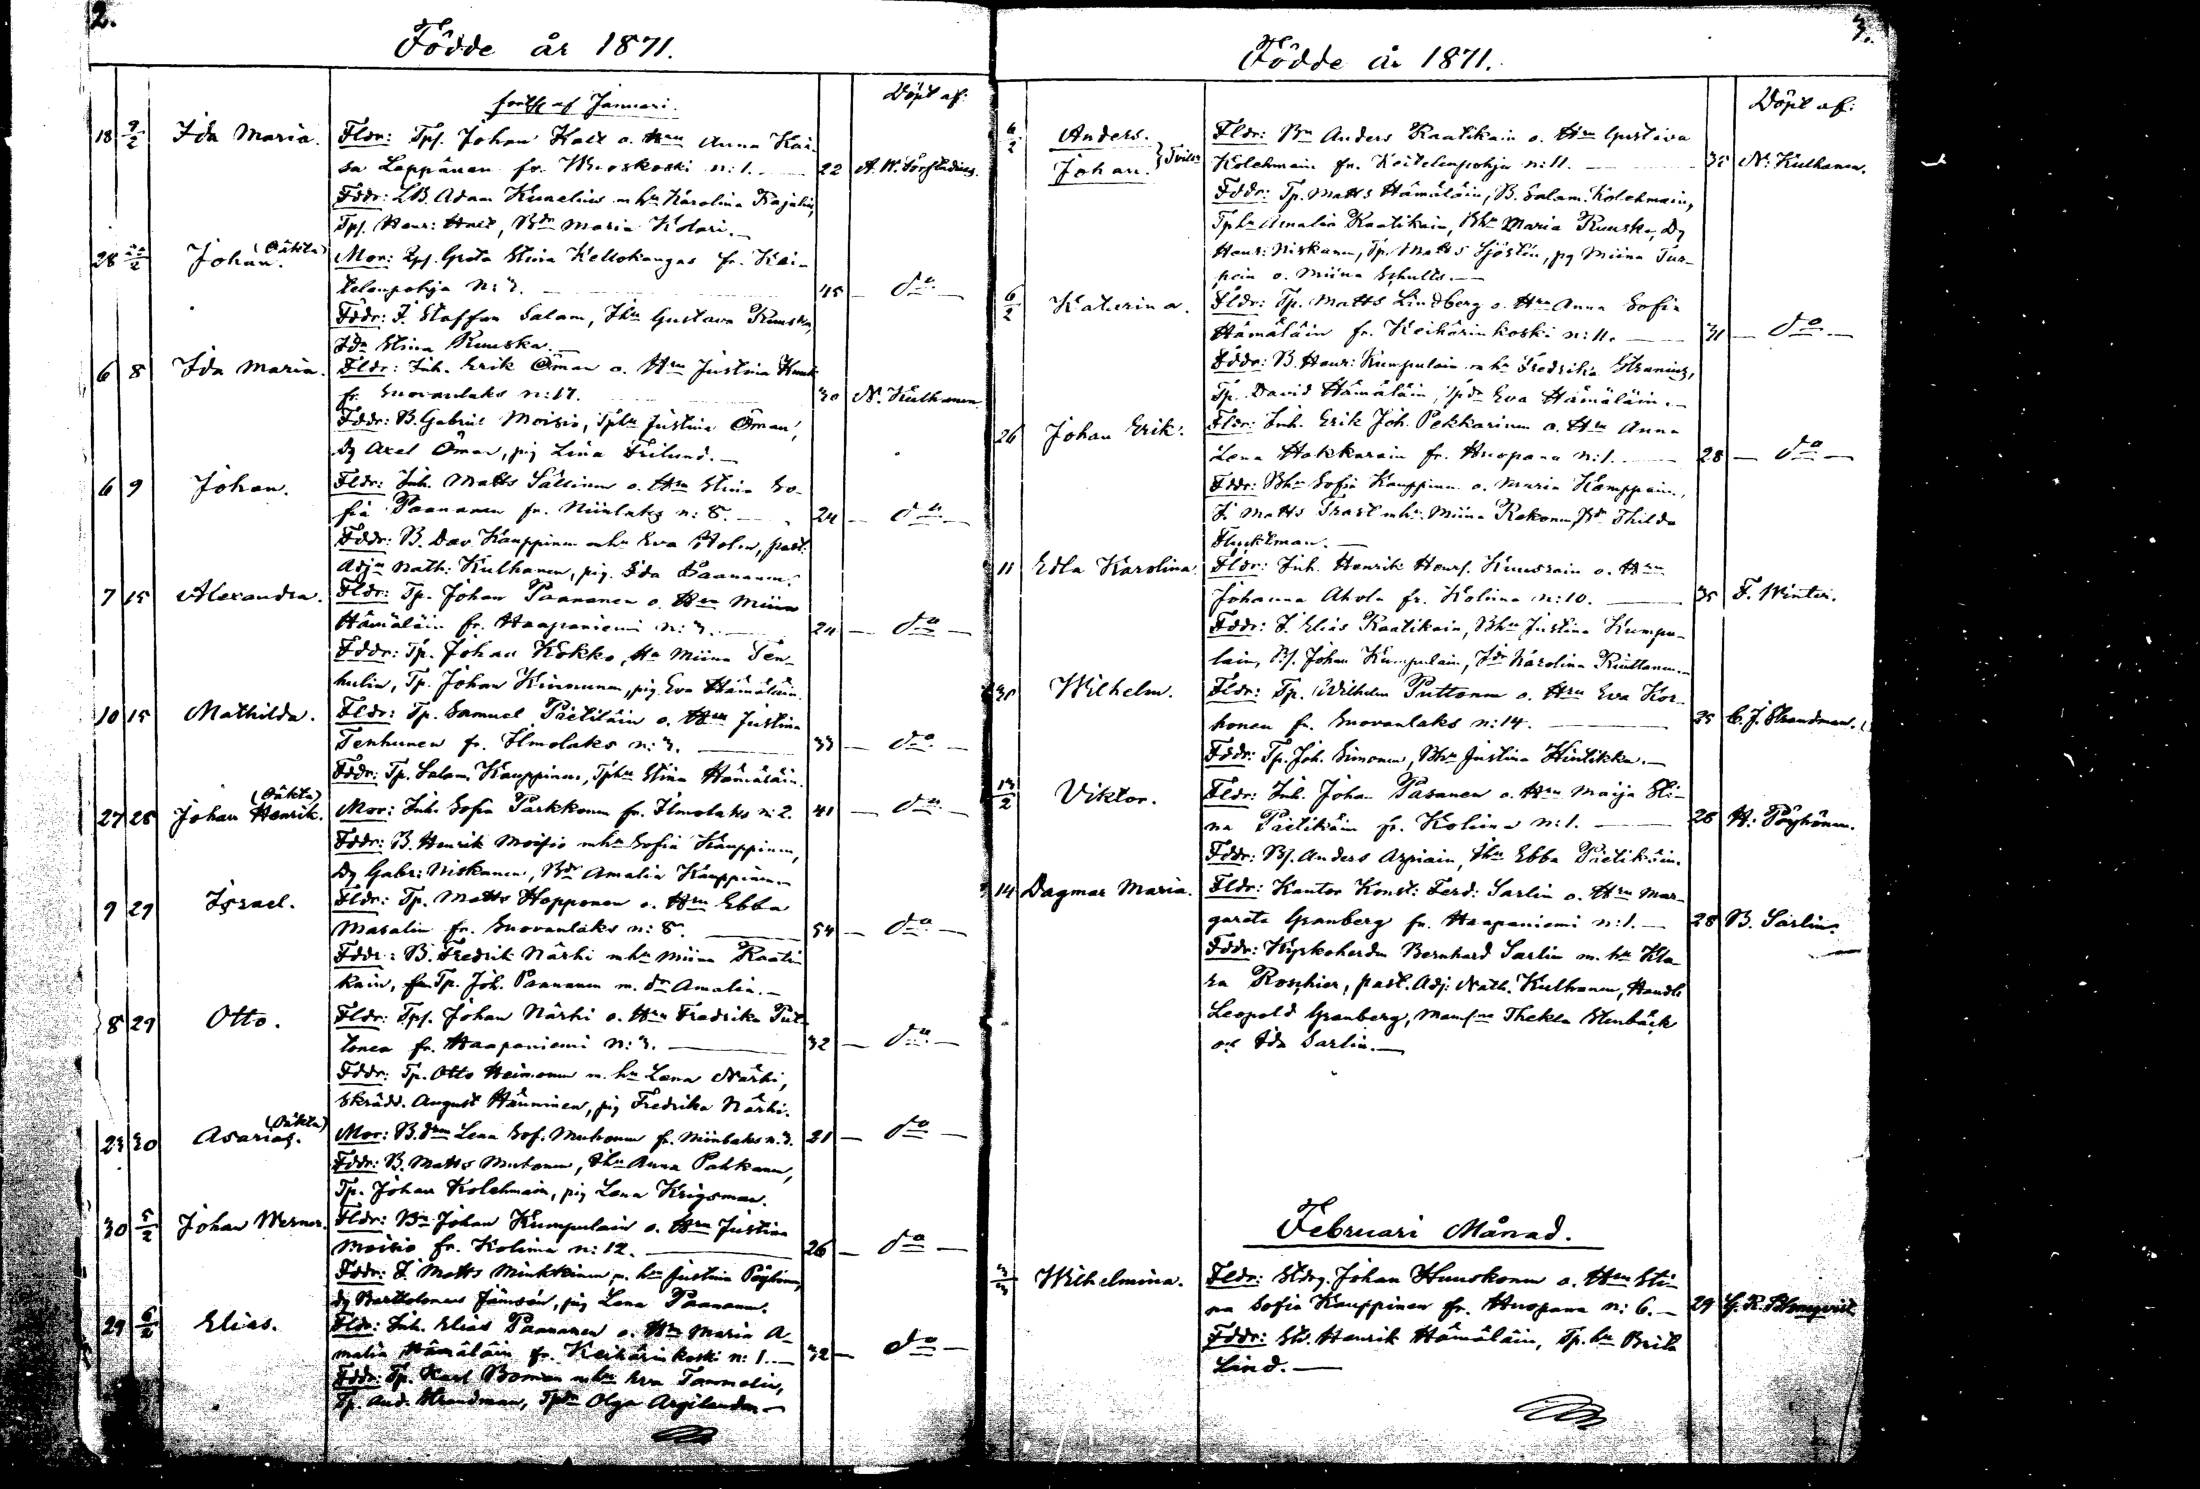 2.
Födde år 1871.
forts. af Januari.
Döpt af:
18 9/2 Ida Maria. Fldr: Tpf. Johan Halt o. Hru Anna Kai-
sa Leppänen fr. Wuoskoski n:1. 22
Fddr: Adam Kunelius m hu Karolina Rajalin,
Tpf. Henr: Halt, Bdr Maria Kolari.
28 Johan. (Oäkta) Mor: Greta Stina Kellokangas fr. Kei-
telenpohja N:3. 45 do
Fddr: I. Staffan Salam, Ihu Gustava Ruuska,
Idr Stina Ruuska.
6 8 Ida Maria. Fldr: Inh. Erik Öman o. Hru Justina
fr. Suovanlaks n:17. 30 N. Kulhanen
Fddr: B. Gabriel Moisio, Tphu Justina Öman,
Dg Axel Öman, pig Lina Frilund.
6 9 Johan. Fldr: Inh. Matts Sällinen o. Hru Stina So-
fia Paananen fr. Niinilaks n: 8. 24 do
Fddr: B. Dav. Kauppinen mhu Eva Holm, past.
Adj. Nath: Kulhanen, pig. Ida Paananen.
7 15 Alexandra. Fldr: Tp. Johan Paananen o. Hru Miina
Hämäläin fr. Haapaniemi n: 3. 24 do
Fddr: Tp. Johan Kokko, Hu Miina Ten-
hulin, Tp. Johan Kinnunen, pig Eva Hämäläin.
10 15 Mathilda. Fldr: Tp. Samuel Pietiläin o. Hru Justina
Tenhunen fr. Ilmolaks n: 3. 33 do
Fddr: Tp. Salam. Kauppinen, Tphu Stina Hämäläin.
27 28 Johan Henrik. (Oäkta) Mor: Inh. Sofia Parkkonen fr. Ilmolaks n: 2. 41 do
Fddr: B. Henrik Moisio mhu Sofia Kauppinen,
Dg Gabr: Niskanen, Bdr Amalia Kauppinen.
9 29 Israel. Fldr: Tp. Matts Hopponen o. Hru Ebba
Masalin fr. Suovanlaks n: 8. 54 do
Fddr: B. Fredrik Närhi mhu Miina Raati-
kain, Tp. Joh. Paananen m. dr Amalia.
8 29 Otto. Fldr: Tpf. Johan Närhi o. Hru Fredrika Put-
tonen fr. Haapaniemi N:3. 32 do
Fddr: Tp. Otto Heimonen m. hu Lena Närhi,
Skrädd. August Hänninen, pig Fredrika Närhi.
23 30 Asarias. (Oäkta) Mor: B. Lena Sof. Mutonen fr. Niinilaks n:3. 21 do
Fddr: B. Matts Mutonen, Ihu Anna Pahkanen,
Tp. Johan Kolehmain, pig Lena Krigsman.
30 5/2 Johan Werner. Fldr: Bn Johan Kumpulain o. Hru Justina
Moisio fr. Kolima n: 12. 26 do
Fddr: I. Matts Minkkinen m. hu Justina
Dg Bartholomeus Jämsén, pig Lena Paananen.
29 6/2 Elias. Fldr: Inh. Elias Paananen o. Hru Maria A-
malia Hämäläin fr. Keihärinkoski n: 1. 32 do
Fddr: Tp. Karl Boman mhu Eva Tammelin,
Tp. And. Strandman, Tpdr Olga Argilander
3.
Födde år 1871.
Döpt af:
6/2 Anders. Johan. } Tvill. Fldr: Bn Anders Raatikain o. Hru Gustava
Kolehmain fr. Keitelenpohja n:11. 35 N. Kulhanen.
Fddr: Tp. Matts Hämäläin, B. Salam. Kolehmain,
Tphu Amalia Raatikain, Bhu Maria Ruuska, Dg
Henr: Niskanen, Tp. Matts Sjöstén, pg Miina Tur-
pein o. Miina Schults.
6/2 Katarina. Fldr: Tp. Matts Lindberg o. Hru Anna Sofia
Hämäläin fr. Keihärinkoski n: 11. 31 do
Fddr: B. Henr: Kumpulain mhu Fredrika Granius,
Tp. David Hämäläin, Tpdr Eva Hämäläin.
26 Johan Erik. Fldr: Inh. Erik Joh. Pekkarinen o. Hru Anna
Lena Hakkarain fr. Huopana n:1. 28 do
Fddr: Bhu Sofia Kauppinen o. Maria Kamppain,
I. Matts Trast mhu Miina Rekonen, Bdr Thilda
11 Edla Karolina. Fldr: Inh. Henrik Henrs. Kuusrain o. Hru
Johanna Ahola fr. Kolima n: 10. 35 F. Winter.
Fddr: I. Elias Raatikain, Bhu Justina Kumpu-
lain, Bf. Johan Kumpulain, Idr Karolina Ruuttanen.
Wilhelm. Fldr: Tp. Wilhelm Puttonen o. Hru Eva Kor-
honen fr. Suovanlaks n: 14. 25 C. J. Strandman.
Fddr: Tp. Joh. Simonen, Bhu Justina Hintikka.
13/2 Viktor. Fldr: Inh. Johan Pasanen o. Hru Maija Sti-
na Pietikäin fr. Kolima n:1. 26 H. Pöyhönen.
Fddr: Bf. Anders Arpiain, Ihu Ebba Pietikäin.
14 Dagmar Maria. Fldr: Kantor Konst: Ferd: Sarlin o. Hru Mar-
gareta Granberg fr. Haapaniemi n:1. 28 B. Sarlin.
Fddr: Kyrkoherden Bernhard Sarlin m. hu Kla-
ra Roschier, past. Adj. Nath. Kulhanen, Handl.
Leopold Granberg, Mams. Thekla Stenbäck
och Ida Sarlin.
Februari Månad.
3/3 Wilhelmina. Fldr: Johan Huuskonen o. Hru Sti-
na Sofia Kauppinen fr. Huopana n: 6. 29
Fddr: Henrik Hämäläin, Tp. hu Brita
Lind.